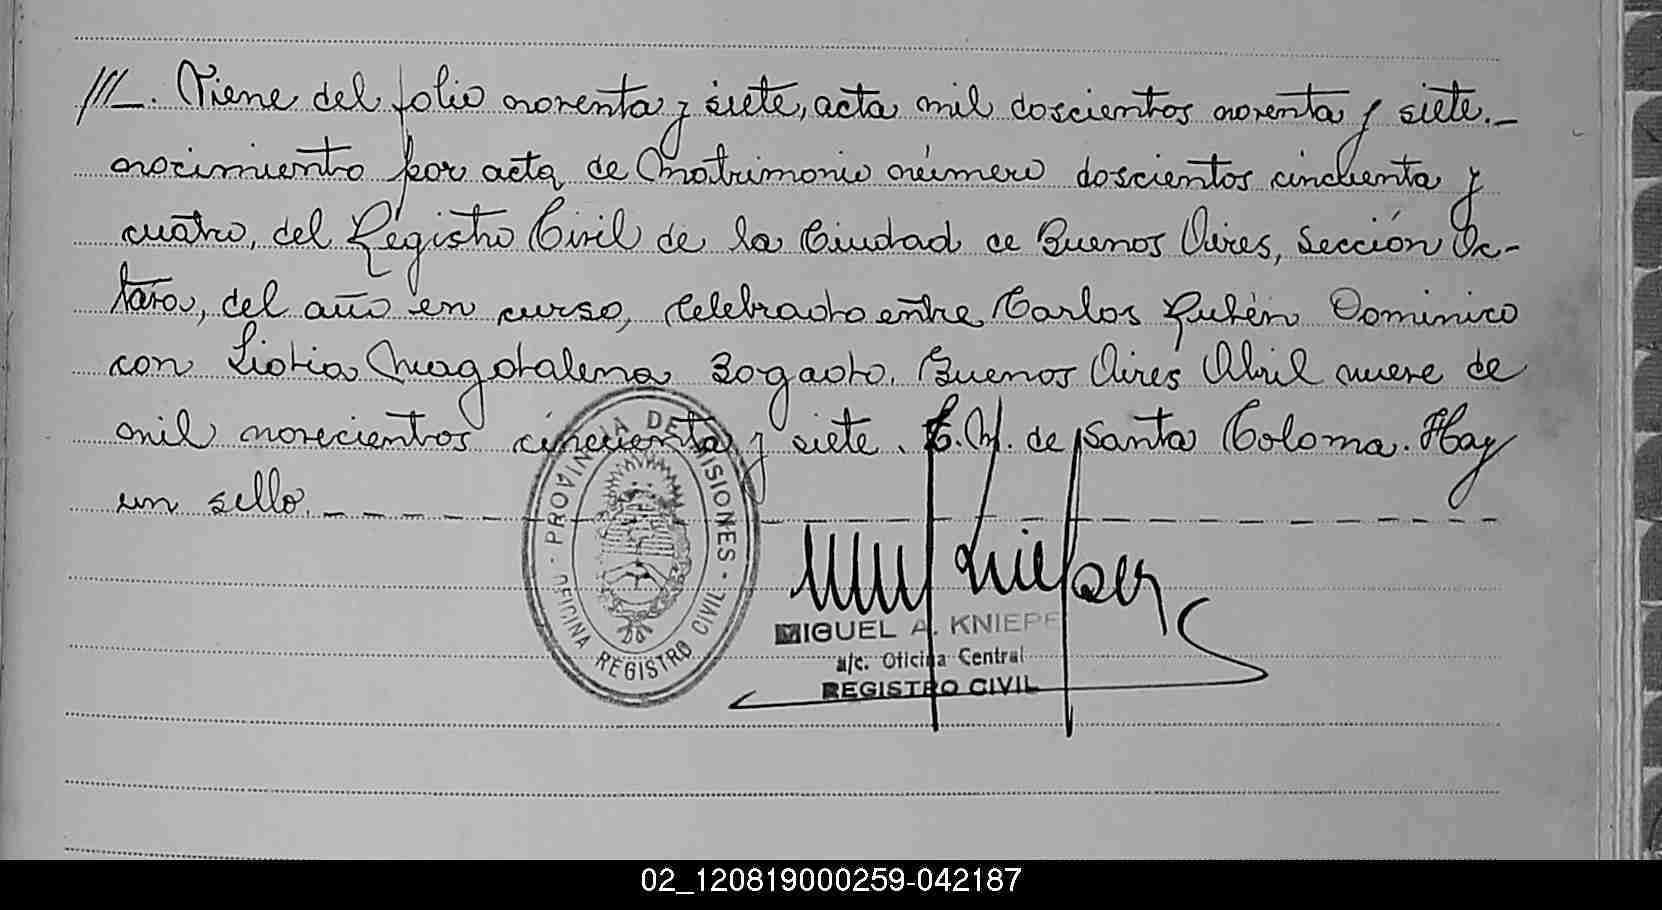 ///_. Viene del folio noventa y siete, acta mil doscientos noventa y siete._
nocimiento por acta de Matrimonio número doscientos cincuenta y
cuatro, del Registro Civil de la Ciudad de Buenos Aires, Sección Oc-
tava, del año en curso, celebrado entre Carlos Rubén Dominico
con Lidia Magdalena Bogado. Buenos Aires Abril nueve de
mil novecientos cincuenta y siete. E.M. de Santa Coloma. Hay
un sello. _ _ _ _ _ _ _ _ _ _ _ _ _ _ _ _ _ _
PROVINCIA DE MISIONES
OFICINA REGISTRO CIVIL
MIGUEL A. KNIEPE
a/c. Oficina Central
REGISTRO CIVIL
02_120819000259-042187